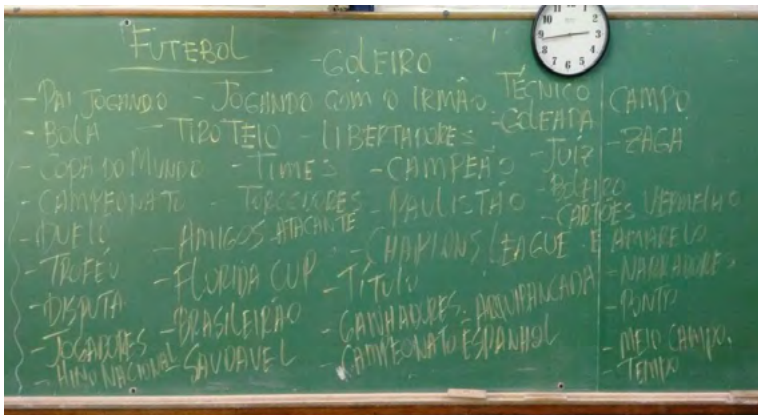 FUTEBOL - GOLEIRO
TÉCNICO
- PAI JOGANDO - JOGANDO COM O IRMÃO CAMPO
- BOLA - TIROTEIO - LIBERTADORES - GOLEADA - ZAGA
- COPA DO MUNDO - TIMES - CAMPEÃO - JUIZ
- CAMPEONATO - TORCEDORES - PAULISTÃO - BOLEIRO
- CARTÕES VERMELHO E AMARELO
- DUELO - AMIGOS ATACANTE - CHAPIONS LEAGUE
- TROFÉU - FLORIDA CUP - TÍTULO - NARRADORES
- DISPUTA - BRASILEIRÃO - GANHADORES - ARQUIBANCADA - PONTO
- JOGADORES SAUDAVEL - CAMPEONATO ESPANHOL - MEIO CAMPO.
- HINO NACIONAL - TEMPO
10 11 12 1 2 3 4 5 6 7 8 9